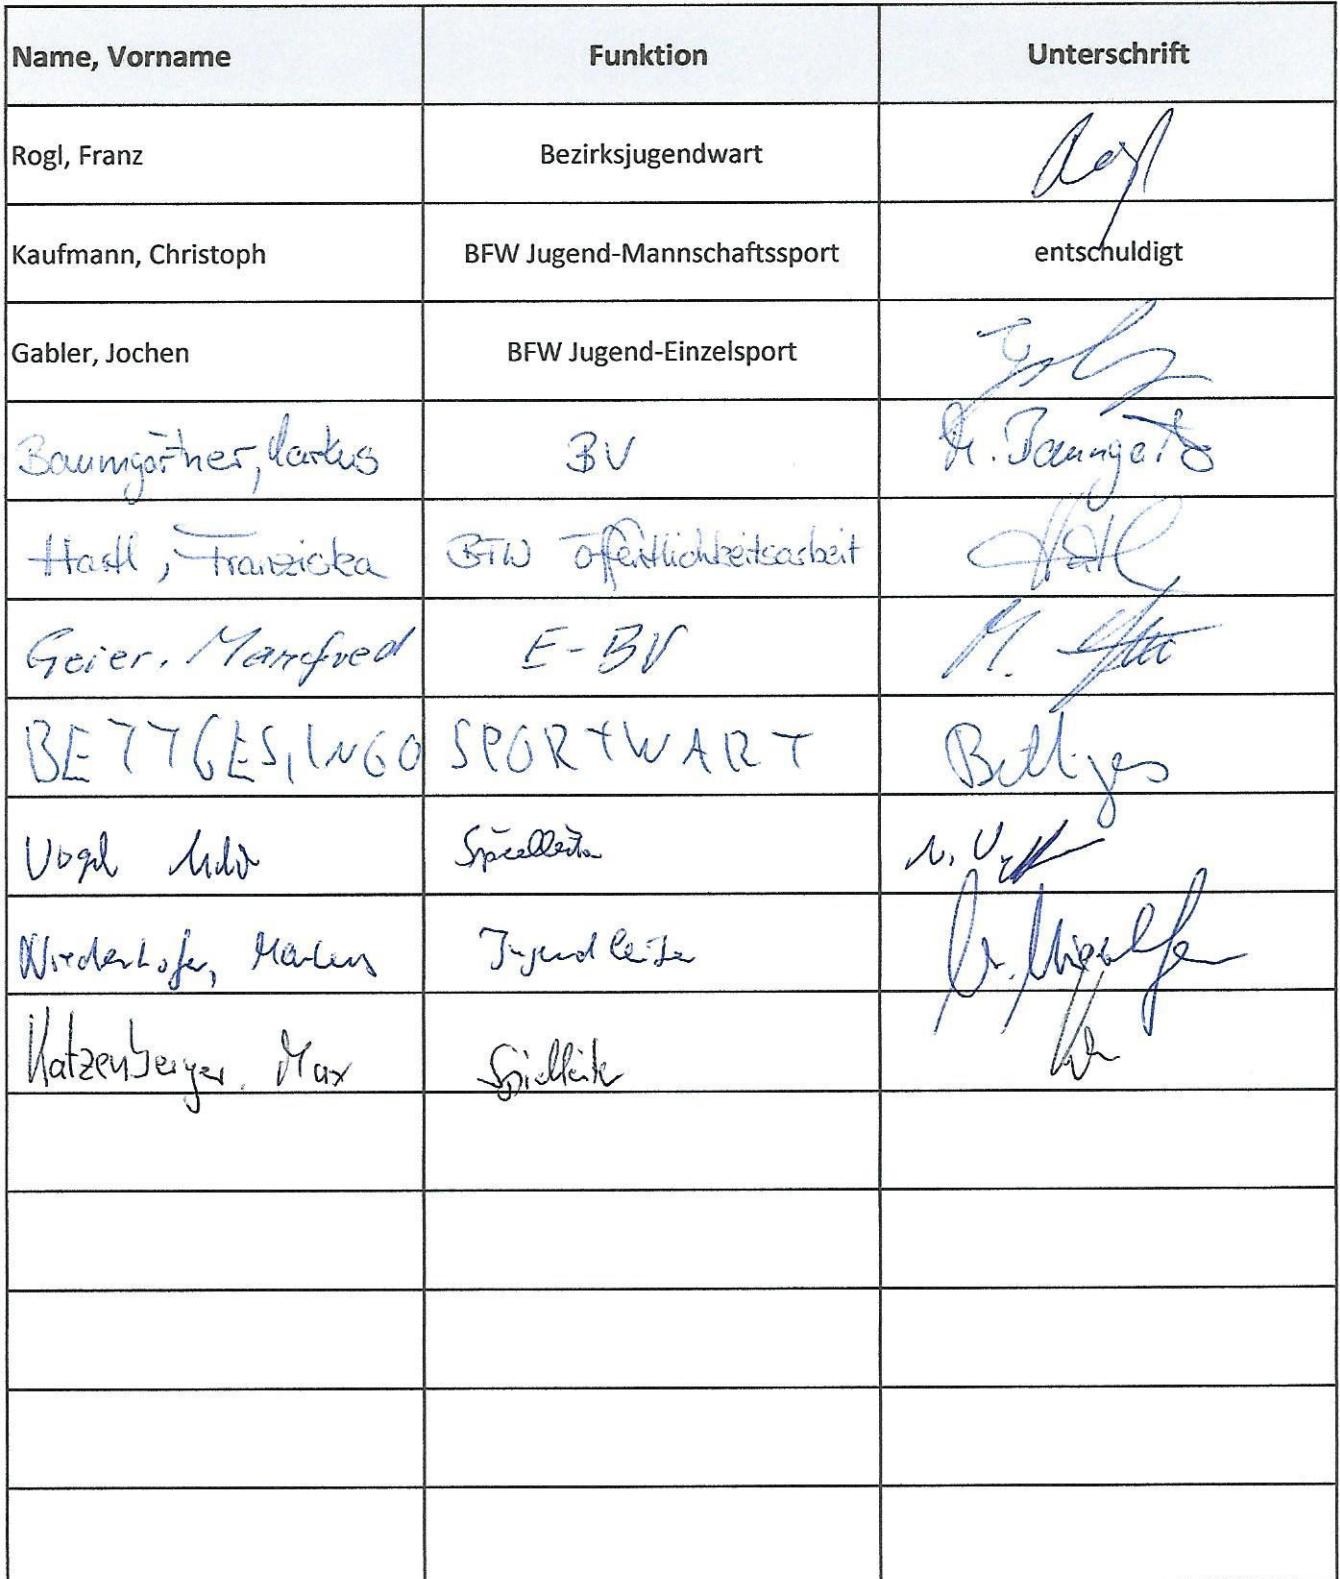 Name, Vorname Funktion Unterschrift
Rogl, Franz Bezirksjugendwart Rogl
Kaufmann, Christoph BFW Jugend-Mannschaftssport entschuldigt
Gabler, Jochen BFW Jugend-Einzelsport
Baumgärtner, Markus BV M. Baumgärtner
Hastl, Franziska BFW Öffentlichkeitsarbeit
Geier, Manfred E-BV M.
BETTGES, INGO SPORTWART Bettges
Vogl Spielleiter
Niederhofer, Markus Jugendleiter
Katzenberger, Max Spielleiter